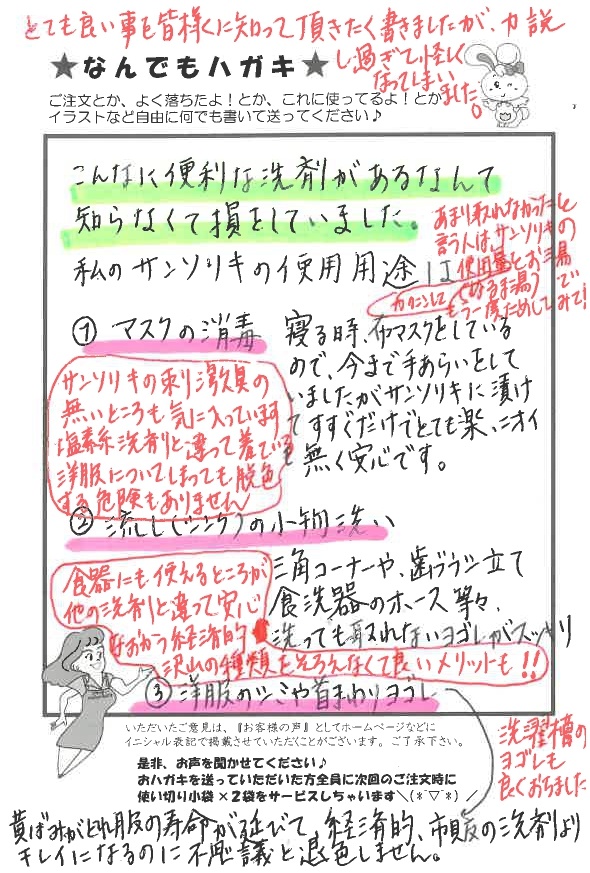 とても良い事を皆様くに知って頂きたく書きましたが、力説
し過ぎて怪しく
なってしまい
ました。
★なんでもハガキ★
ご注文とか、よく落ちたよ!とか、これに使ってるよ!とか
イラストなど自由に何でも書いて送ってください♪
こんなに便利な洗剤があるなんて
知らなくて損をしていました。
私のサンソリキの使用用途は
あまり取れなかったと
言う人はサンソリキの
使用量とお湯
(ぬるま湯)で
かくにんして
もう一度ためしてみて!
① マスクの消毒
寝る時、布マスクをしている
ので、今まで手あらいをして
いましたがサンソリキに漬け
てすすぐだけでとても楽、ニオイ
も無く安心です。
サンソリキの刺激臭の
無いところも気に入っています
塩素系洗剤と違って着ている
洋服についてしまっても脱色
する危険もありません
② 流し(シンク)の小物洗い
三角コーナーや、歯ブラシ立て
食洗器のホース等々、
洗っても取れないヨゴレがスッキリ
食器にも使えるところが
他の洗剤と違って安心
なおかつ経済的
沢山の種類をそろえなくて良いメリットも!!
③ 洋服のシミや首まわりヨゴレ
いただいたご意見は、『お客様の声』としてホームページなどに
イニシャル表記で掲載させていただくことがございます。ご了承下さい。
是非、お声を聞かせてください♪
おハガキを送っていただいた方全員に次回のご注文時に
使い切り小袋×2袋をサービスしちゃいます＼(*¯▽¯*)／
洗濯槽の
ヨゴレも
良くおちました
黄ばみがとれ服の寿命が延びて、経済的、市販の洗剤より
キレイになるのに不思議と退色しません。